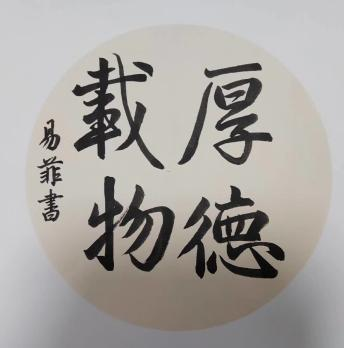 厚德
載物
易菲書